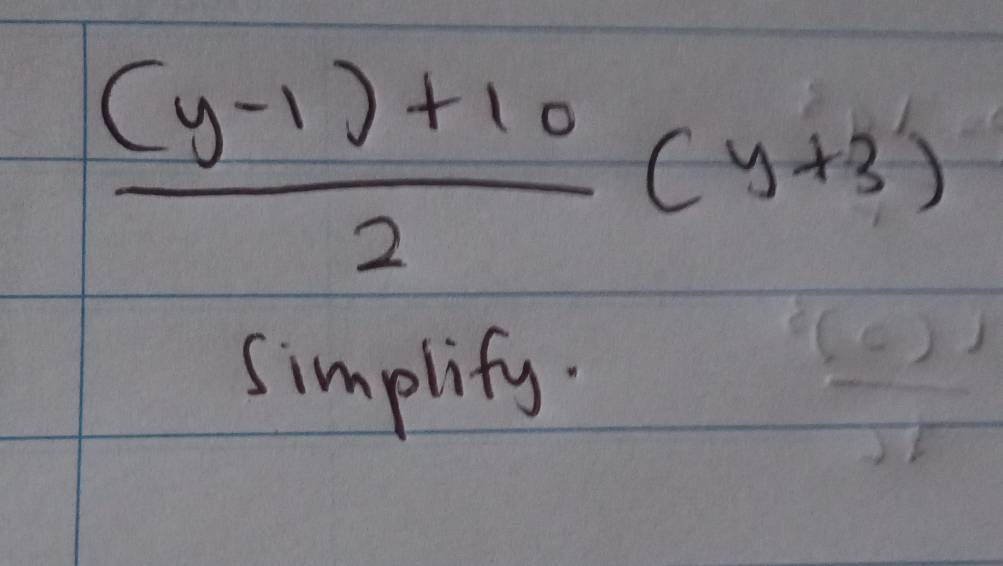 (y-1)+10
2
(y+3)
Simplify.